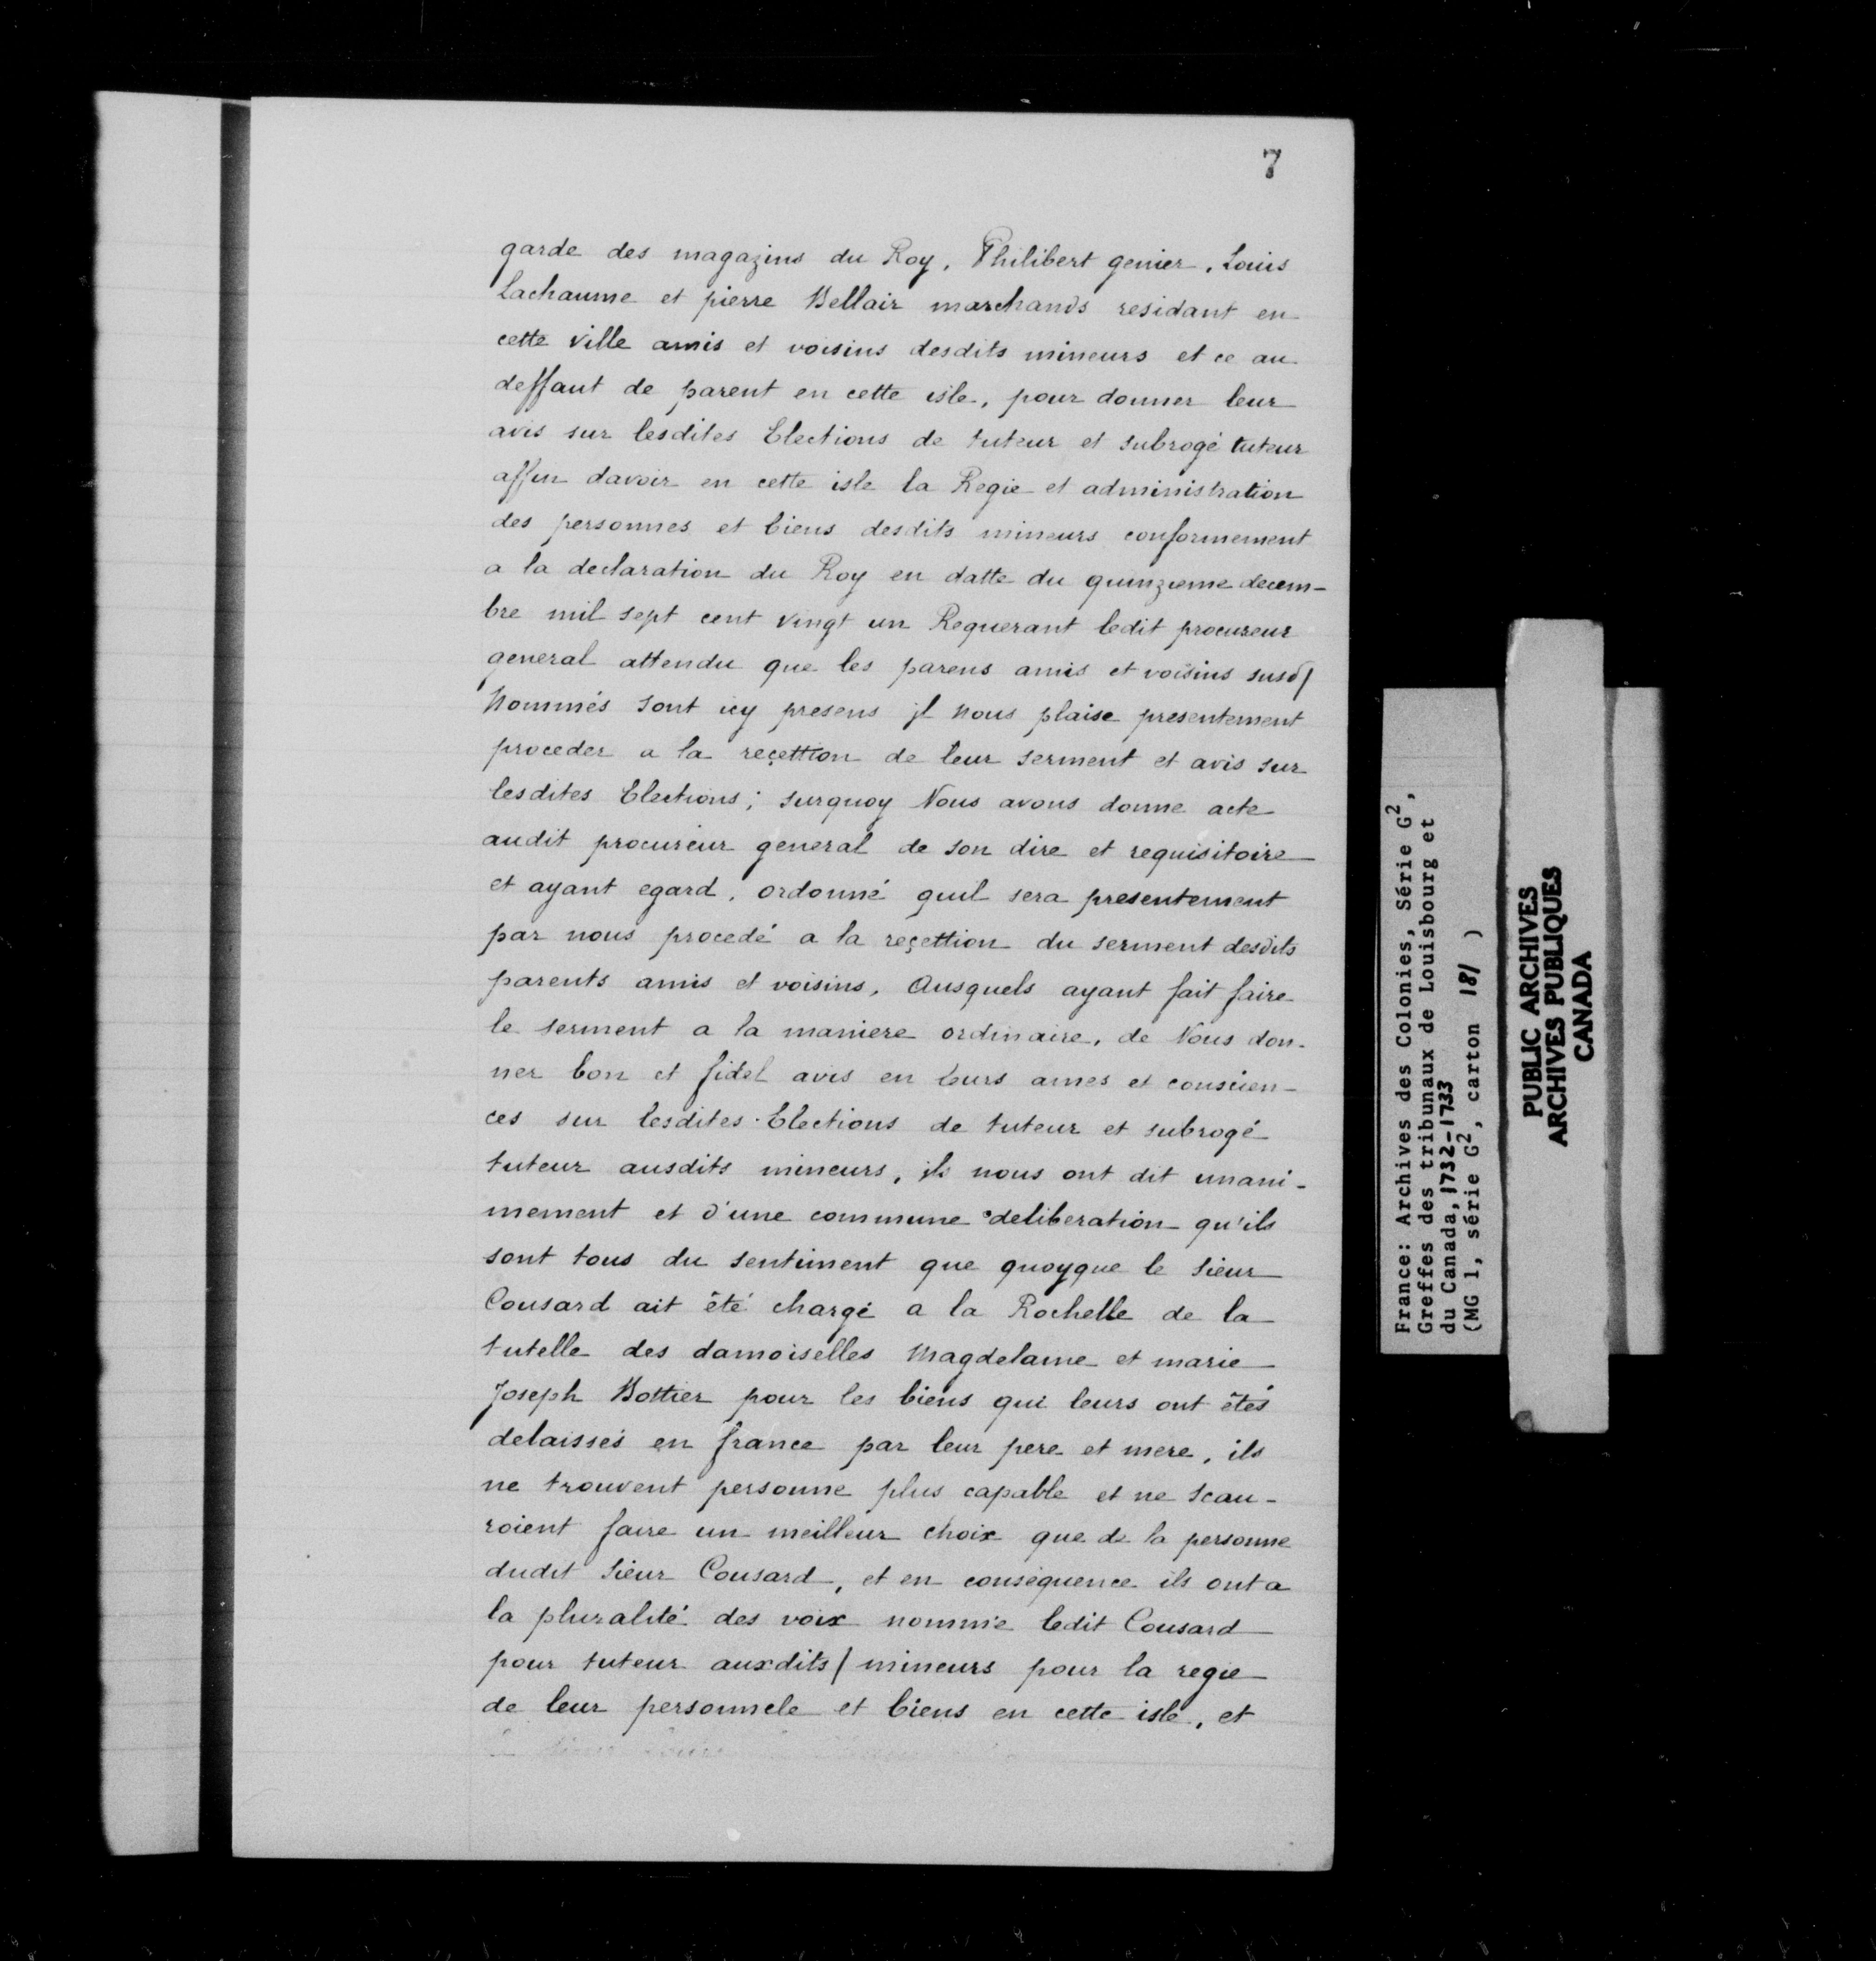 7
garde des magazins du Roy, Philibert genier, Louis
Lachaume et pierre Bellair marchands residant en
cette ville amis et voisins desdits mineurs et ce au
deffaut de parent en cette isle, pour donner leur
avis sur lesdites Elections de tuteur et subrogé tuteur
affin davoir en cette isle la Regie et administration
des personnes et biens desdits mineurs conformement
a la declaration du Roy en datte du quinzieme decem-
bre mil sept cent vingt un Requerant ledit procureur
general attendu que les parens amis et voisins susd/
Nommés sont icy presens jl nous plaise presentement
proceder a la reçettion de leur serment et avis sur
lesdites Elections; surquoy Nous avons donne acte
audit procureur general de son dire et requisitoire
et ayant egard, ordonné quil sera presentement
par nous procedé a la reçettion du serment desdits
parents amis et voisins, Ausquels ayant fait faire
le serment a la maniere ordinaire, de Nous don-
ner bon et fidel avis en leurs ames et conscien-
ces sur lesdites Elections de tuteur et subrogé
tuteur ausdits mineurs, ils nous ont dit unani-
mement et d'une commune deliberation qu'ils
sont tous du sentiment que quoyque le sieur
Cousard ait été chargé a la Rochelle de la
tutelle des damoiselles Magdelaine et marie
Joseph Bottier pour les biens qui leurs ont étés
delaissés en france par leur pere et mere, ils
ne trouvent personne plus capable et ne scau-
roient faire un meilleur choix que de la personne
dudit sieur Cousard, et en conséquence ils ont a
la pluralité des voix nommé ledit Cousard
pour tuteur auxdits/ mineurs pour la regie
de leur personnele et biens en cette isle, et
France: Archives des Colonies, Série G2,
Greffes des tribunaux de Louisbourg et
du Canada, 1732-1733
(MG 1, série G2, carton 181 )
PUBLIC ARCHIVES
ARCHIVES PUBLIQUES
CANADA